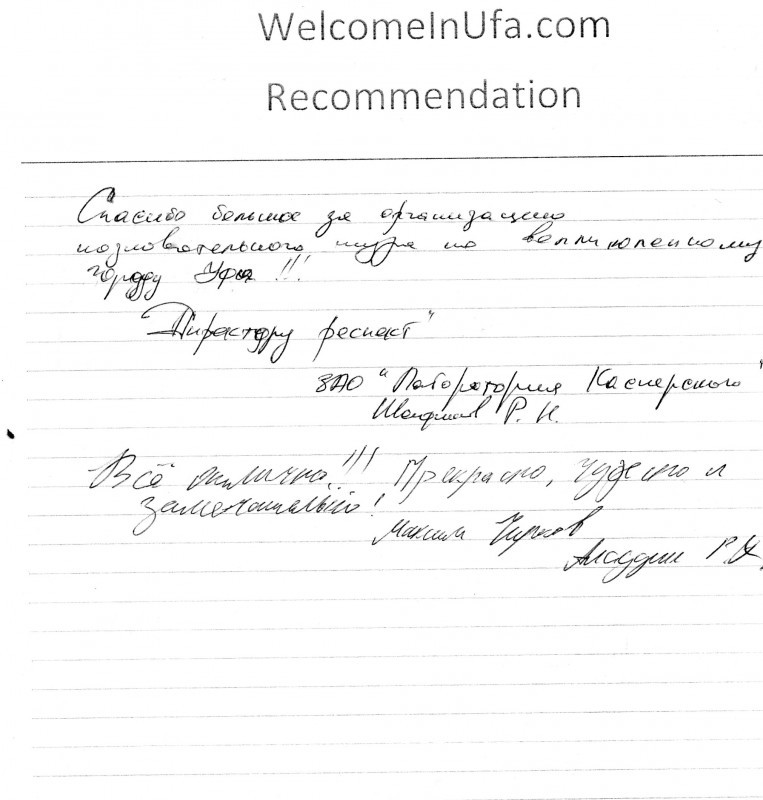 WelcomeInUfa.com
Recommendation
Спасибо большое за организацию
познавательного тура по великолепному
городу Уфа !!!
"Директору респект"
ЗАО "Лаборатория Касперского"
Р. Н.
Всё отлично!!! Прекрасно, чудесно и
замечательно!
Максим